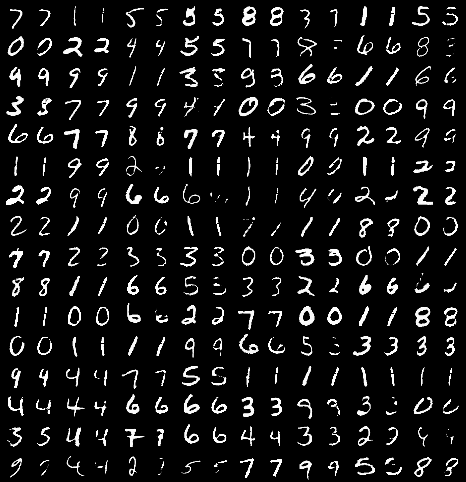 7 7 1 1 5 5 5 5 8 8 3 1 1 5 5
0 0 2 2 4 4 5 5 7 7 8 6 6 8
9 9 9 9 1 1 3 3 9 9 6 6 1 1 6 6
3 3 7 7 9 9 4 0 0 3 0 0 9 9
6 6 7 7 8 8 7 7 4 4 9 9 2 2 9 9
1 1 9 9 2 1 1 1 1 0 0 1 1 2 2
2 2 9 9 6 6 6 1 1 4 2 2 2
2 2 1 1 0 0 1 1 7 1 1 8 8 0 0
7 7 2 2 3 3 3 3 0 0 3 3 0 0 1 1
8 8 1 1 6 6 5 5 3 3 2 2 6 6 6
1 1 0 0 6 2 2 7 7 0 0 1 1 8 8
0 0 1 1 1 1 9 9 6 6 5 3 3 3 3
9 9 4 4 7 7 5 5 1 1 1 1 1 1 1 1
4 4 4 4 6 6 6 6 3 3 9 9 3 0
3 5 4 4 7 7 6 6 4 4 3 3 2 2
9 4 4 2 5 5 7 7 9 9 5 8 8